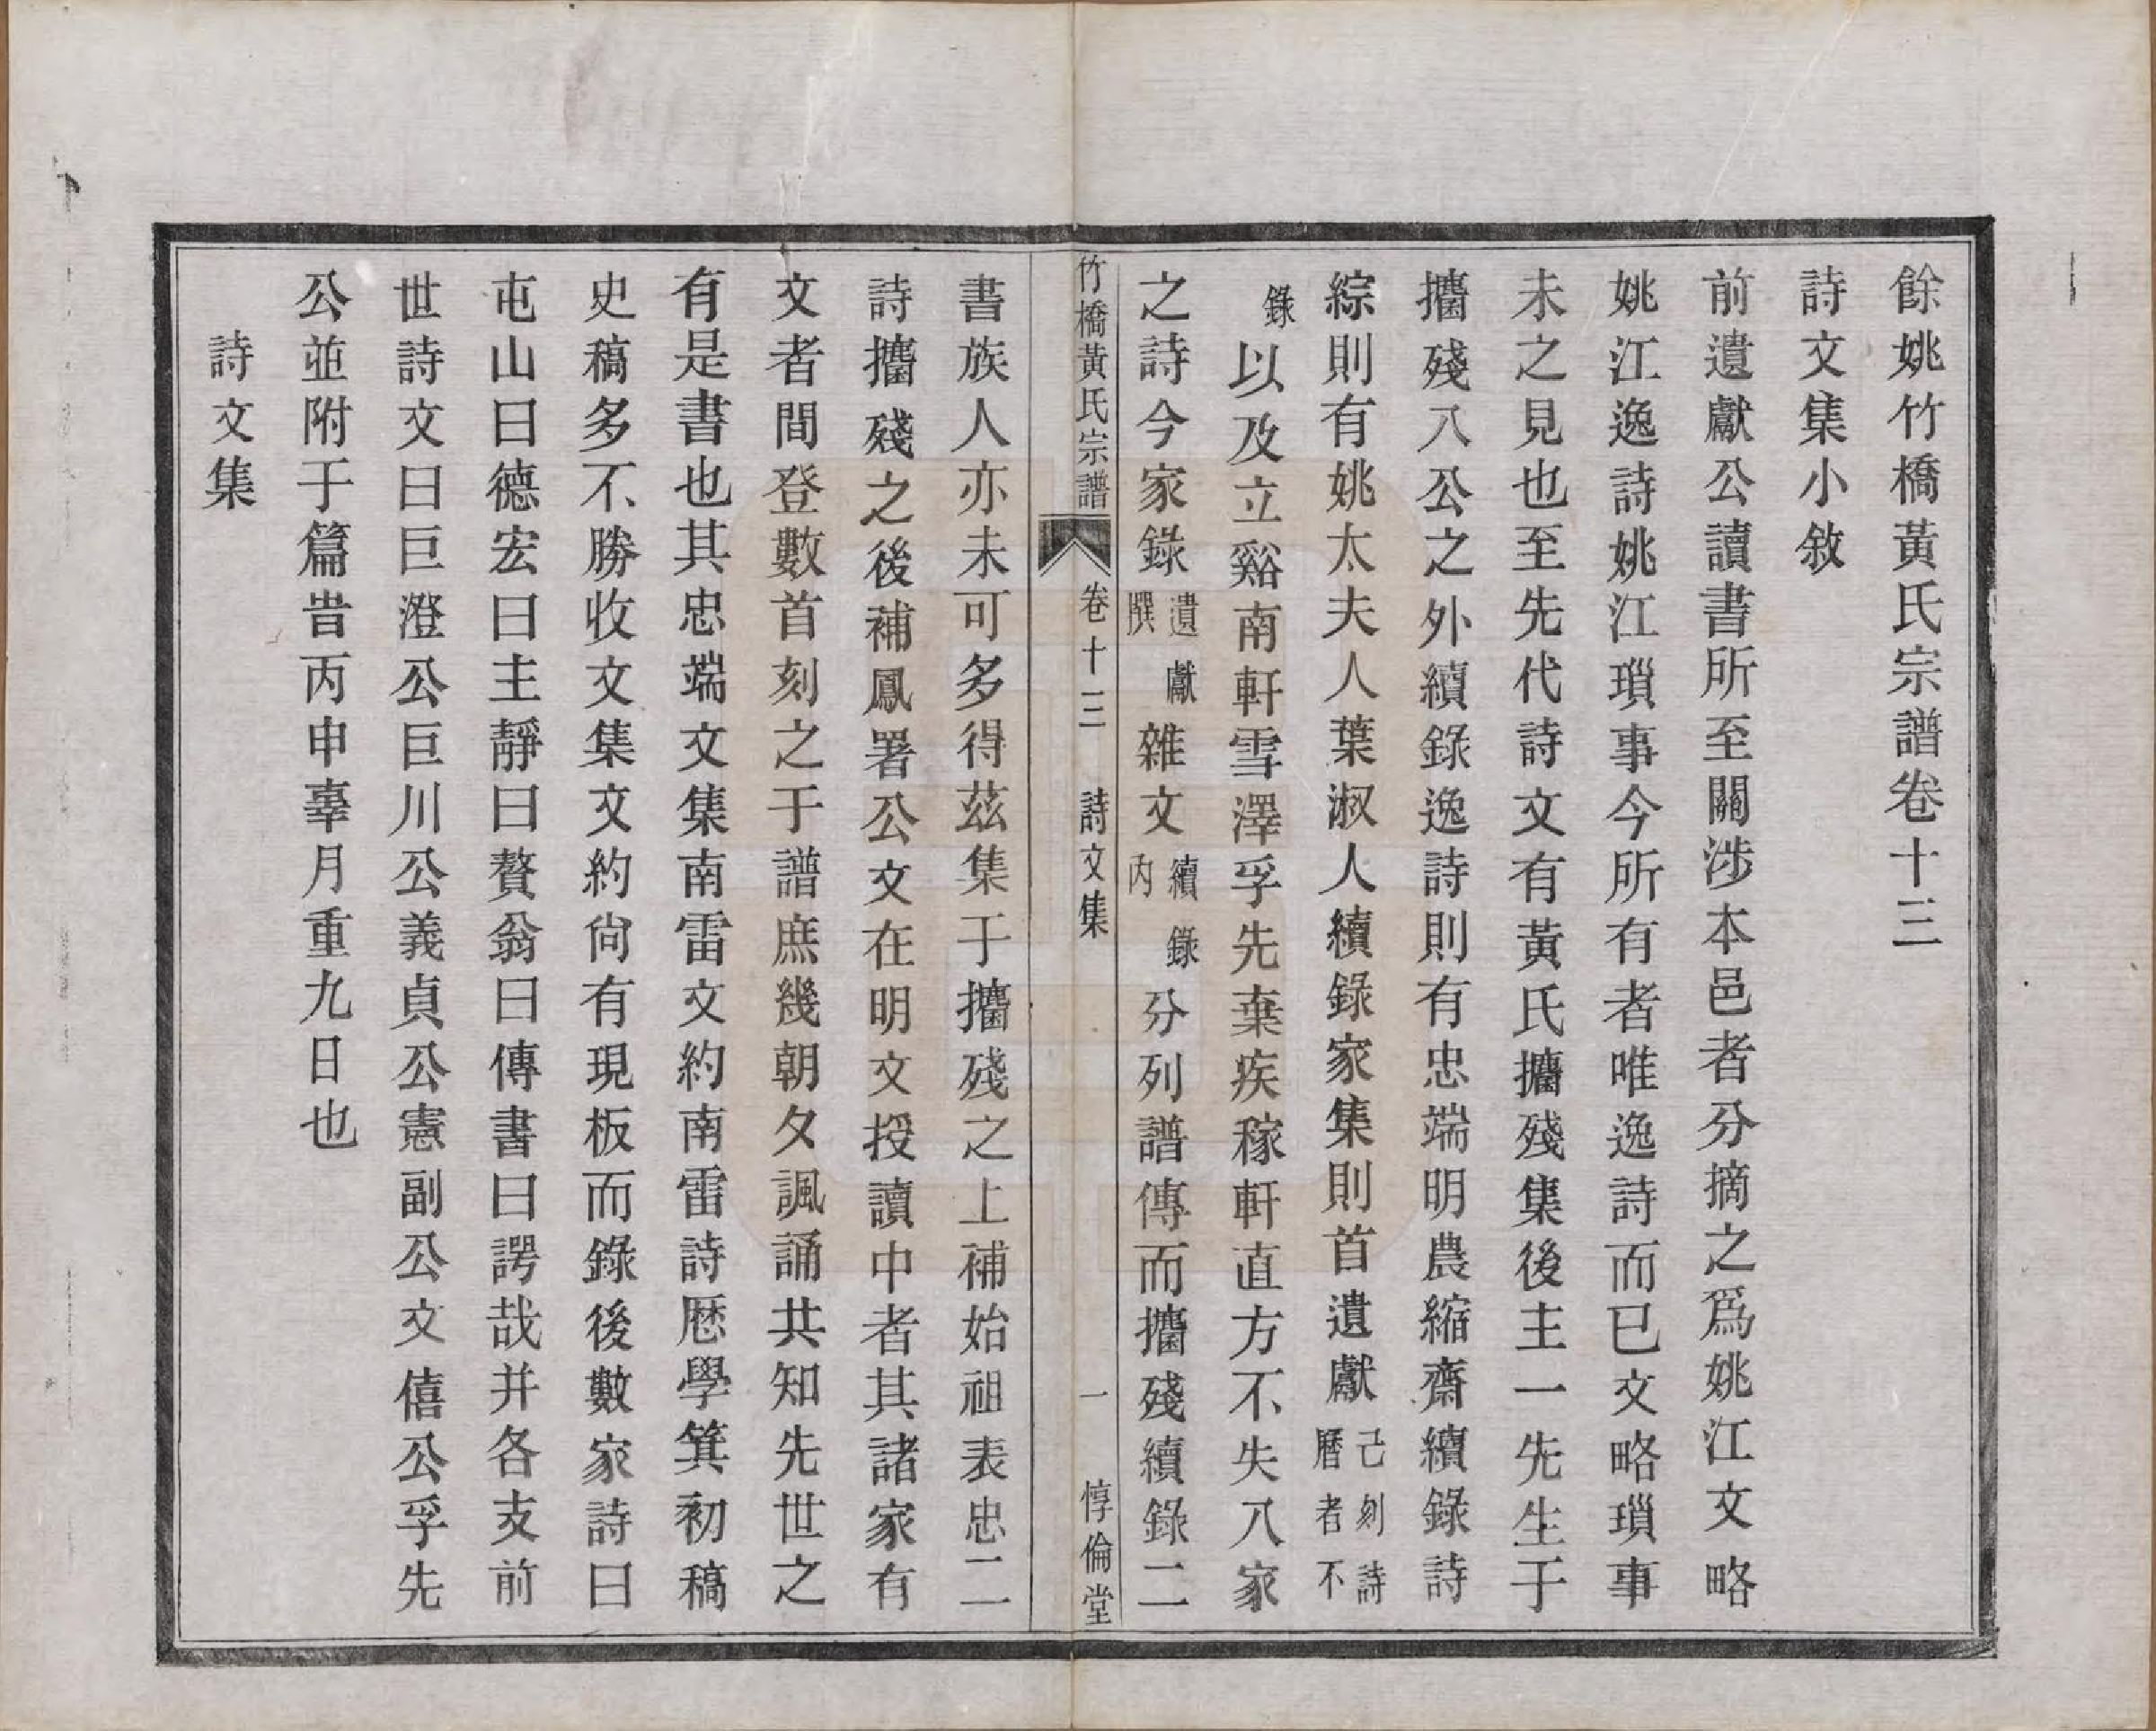 餘姚竹橋黃氏宗譜卷十三
詩文集小敘
前遺獻公讀書所至關涉本邑者分摘之爲姚江文略
姚江逸詩姚江瑣事今所有者唯逸詩而已文略瑣事
未之見也至先代詩文有黃氏攟殘集後主一先生于
攟殘八公之外續錄逸詩則有忠端明農縮齋續錄詩
綜則有姚太夫人葉淑人續錄家集則首遺獻己刻詩曆者不
錄以及立谿南軒雪澤孚先棄疾稼軒直方不失八家
之詩今家錄遺獻撰雜文續錄內分列譜傳而攟殘續錄二
竹橋黃氏宗譜 卷十三 詩文集 一 惇倫堂
書族人亦未可多得茲集于攟殘之上補始祖表忠二
詩攟殘之後補鳳署公文在明文授讀中者其諸家有
文者間登數首刻之于譜庶幾朝夕諷誦共知先世之
有是書也其忠端文集南雷文約南雷詩歷學箕初稿
史稿多不勝收文集文約尙有現板而錄後數家詩曰
屯山曰德宏曰主靜曰贅翁曰傳書曰諤哉并各支前
世詩文曰巨澄公巨川公義貞公憲副公文僖公孚先
公並附于篇旹丙申辜月重九日也
詩文集